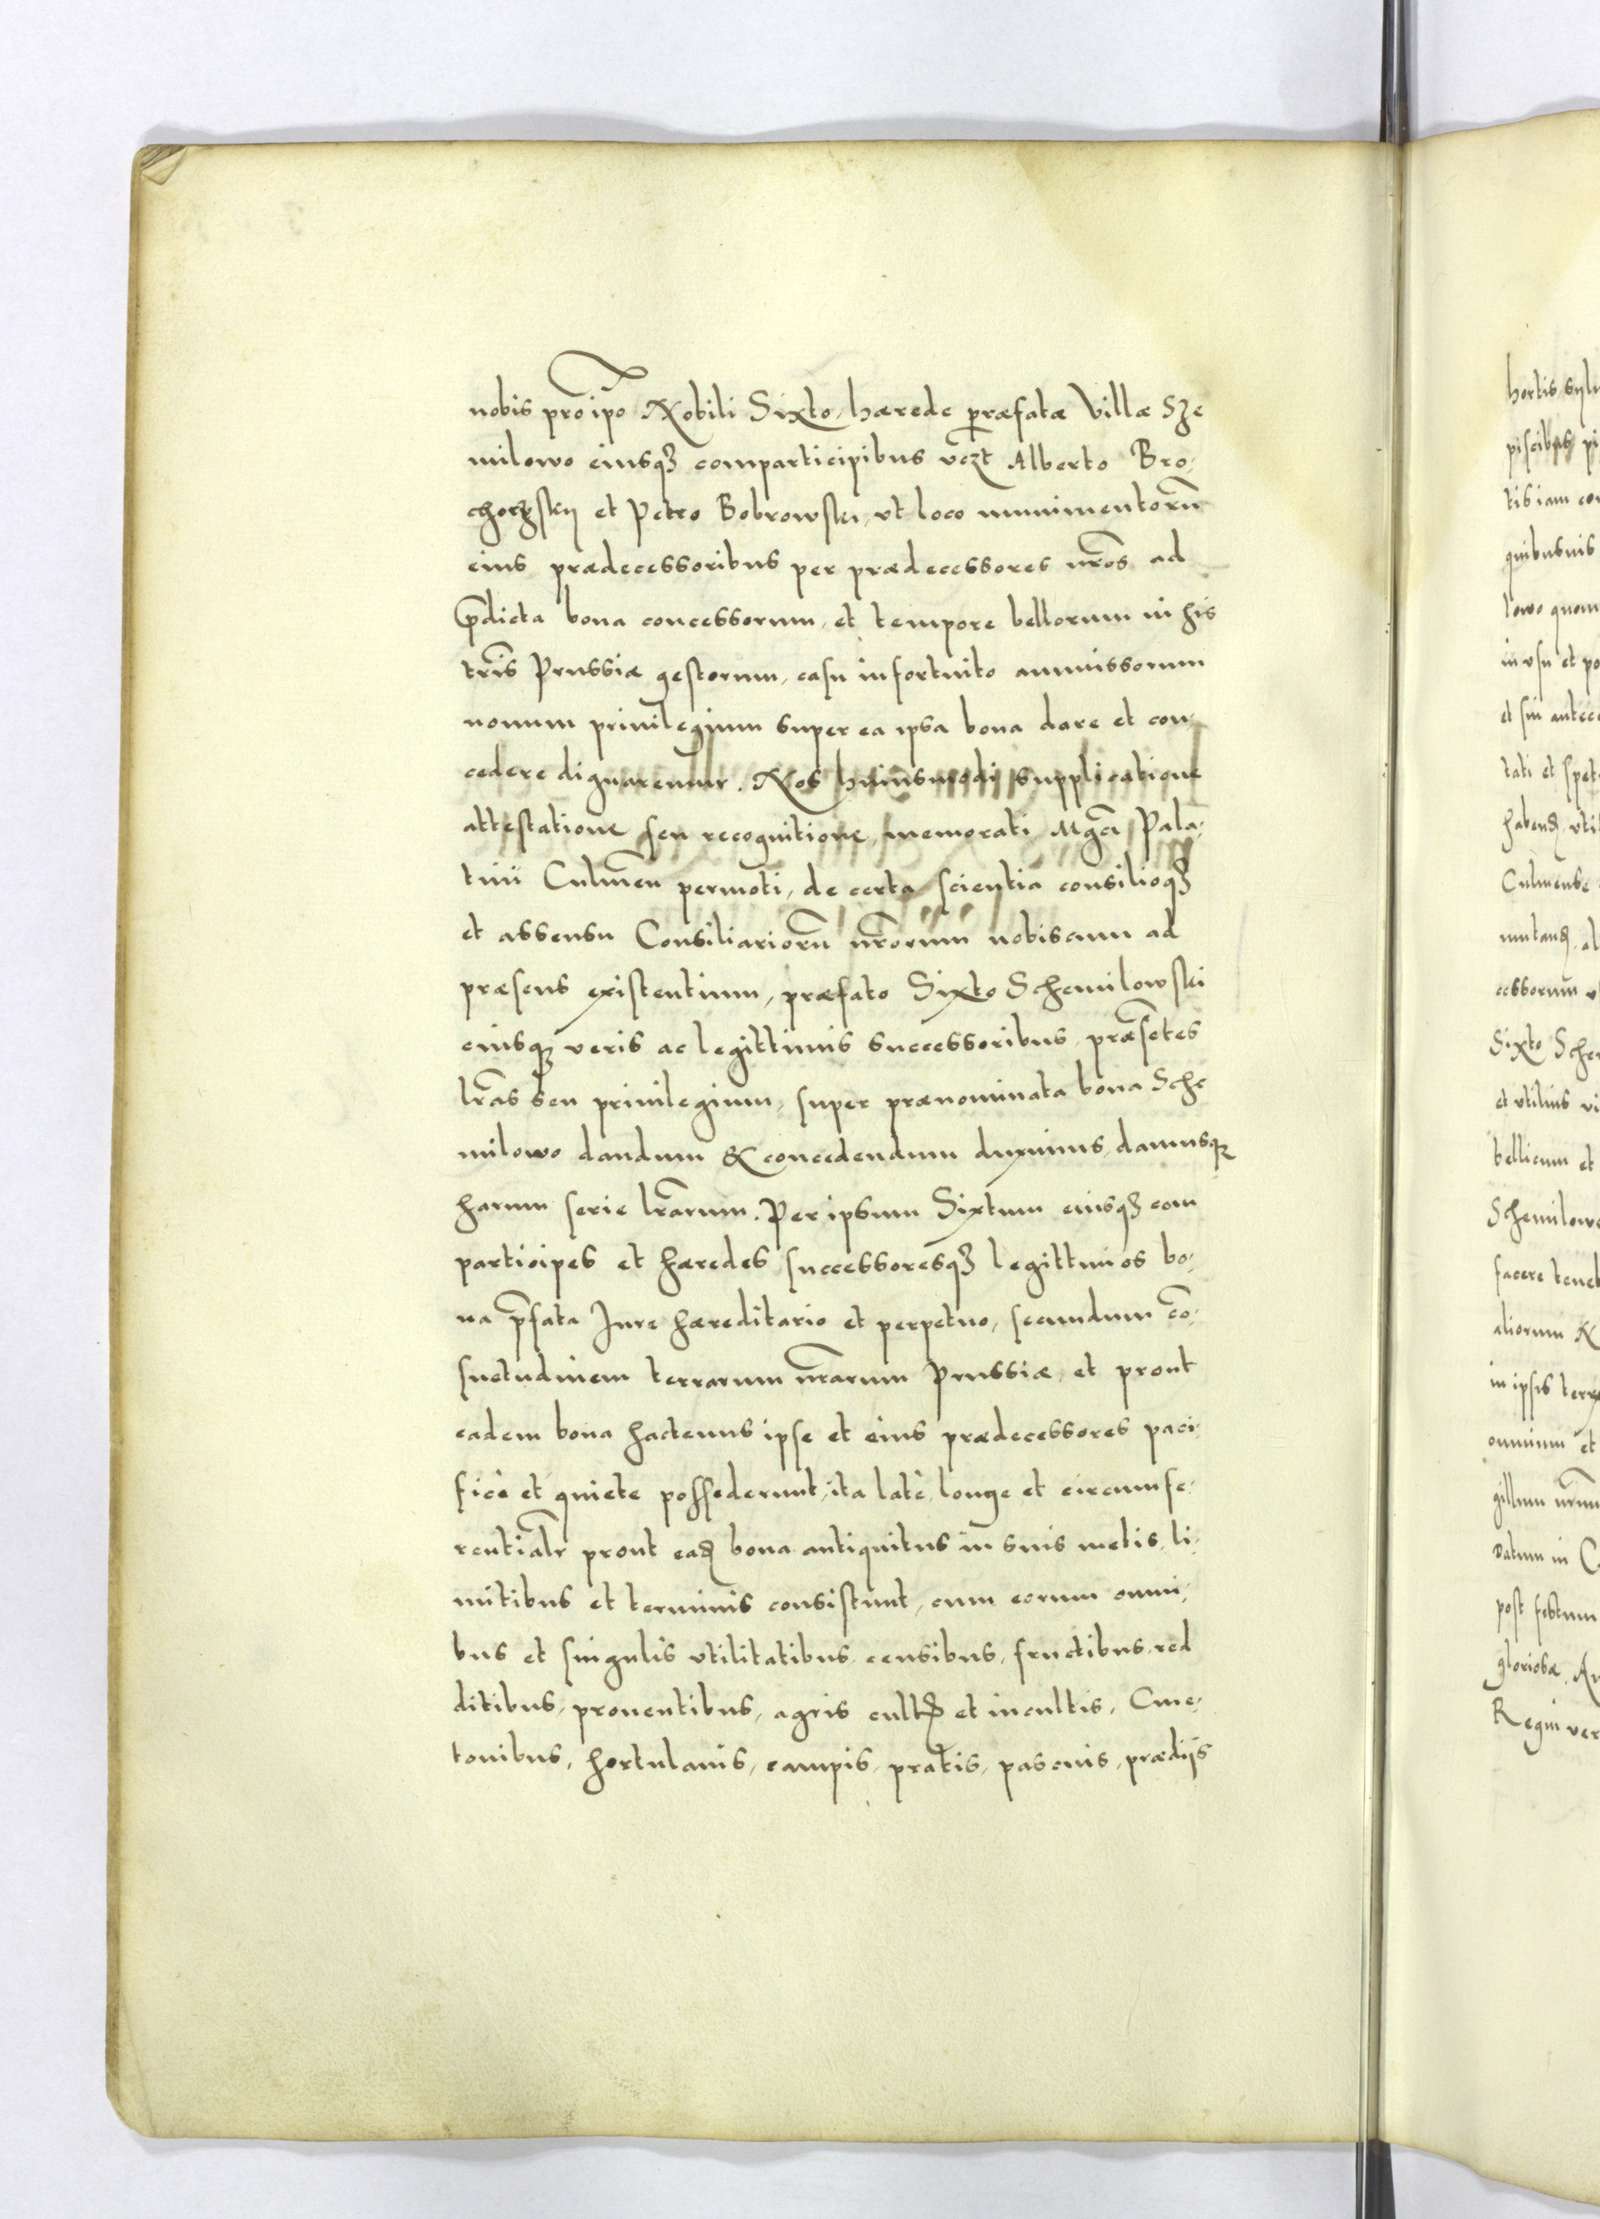 nobis pro ipo Nobili Sixto, hærede præfatæ Villæ Sze
milowo eiusq3 comparticipibus vczt Alberto Bro,
chorzskij et Petro Bobrowski, vt loco munimentorū
eius prædecessoribus per prædecessores nr̃os ad
p̃dicta bona concessorum, et tempore bellorum in his
tr̃is Prussiæ gestorum, casu infortuito ammissorum
nouum priuilegium super ea ipsa bona dare et con,
cedere dignaremur. Nos huiusmodi supplicatione
attestatione seu recognitione, memorati Mgci Pala,
tini Culmen̄ permoti, de certa scientia consilioq3
et assensu Consiliariorū nr̃orum nobiscum ad
præsens existentium, præfato Sixto Schemilowski
eiusq3 veris ac legittimis successoribus, præsētes
lr̃as seu priuilegium, super prænominata bona Sche
milowo dandum & concedendum duximus, damusq3
harum serie lr̃arum. Per ipsum Sixtum eiusq3 com
participes et hæredes, successoresq3 legittimos bo,
na p̃fata Iure hæreditario et perpetuo, secundum cō,
suetudinem terrarum nr̃arum Prussiæ, et prout
eadem bona hactenus ipse et eius prædecessores paci,
ficè et quiete possederunt, ita latè, longe et circumfe,
rentialr prout ead bona antiquitus in suis metis, li,
mitibus et terminis consistunt, cum eorum omni,
bus et singulis vtilitatibus, censibus, fructibus, red
ditibus, prouentibus, agris cult et incultis, Cme,
tonibus, hortulanis, campis, pratis, pascuis, prædijs
hortis
piscib
tis iam
quibusuis
lowo quom
in vsu et po
et sui antece
tati et
habend, vti
Culmense
mutand, al
cessorum v
Sixto Sche
et vtilius vi
bellicum et
Schemilow
facere teneb
aliorum N
in ipsis terr
omnium et
gillum nr̃um
Datum in C
post festum
gloriosæ, An
Regni ver